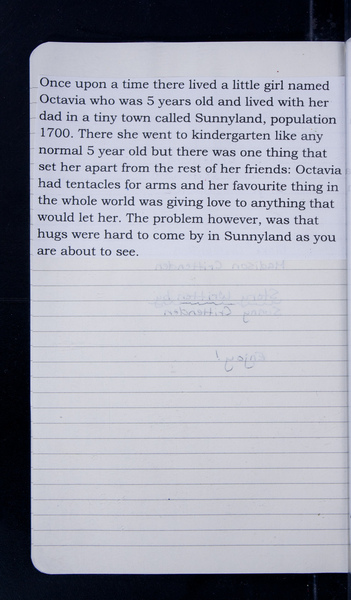 Once upon a time there lived a little girl named
Octavia who was 5 years old and lived with her
dad in a tiny town called Sunnyland, population
1700. There she went to kindergarten like any
normal 5 year old but there was one thing that
set her apart from the rest of her friends: Octavia
had tentacles for arms and her favourite thing in
the whole world was giving love to anything that
would let her. The problem however, was that
hugs were hard to come by in Sunnyland as you
are about to see.
Madison Crittenden
Story
Crittenden
Enjoy!